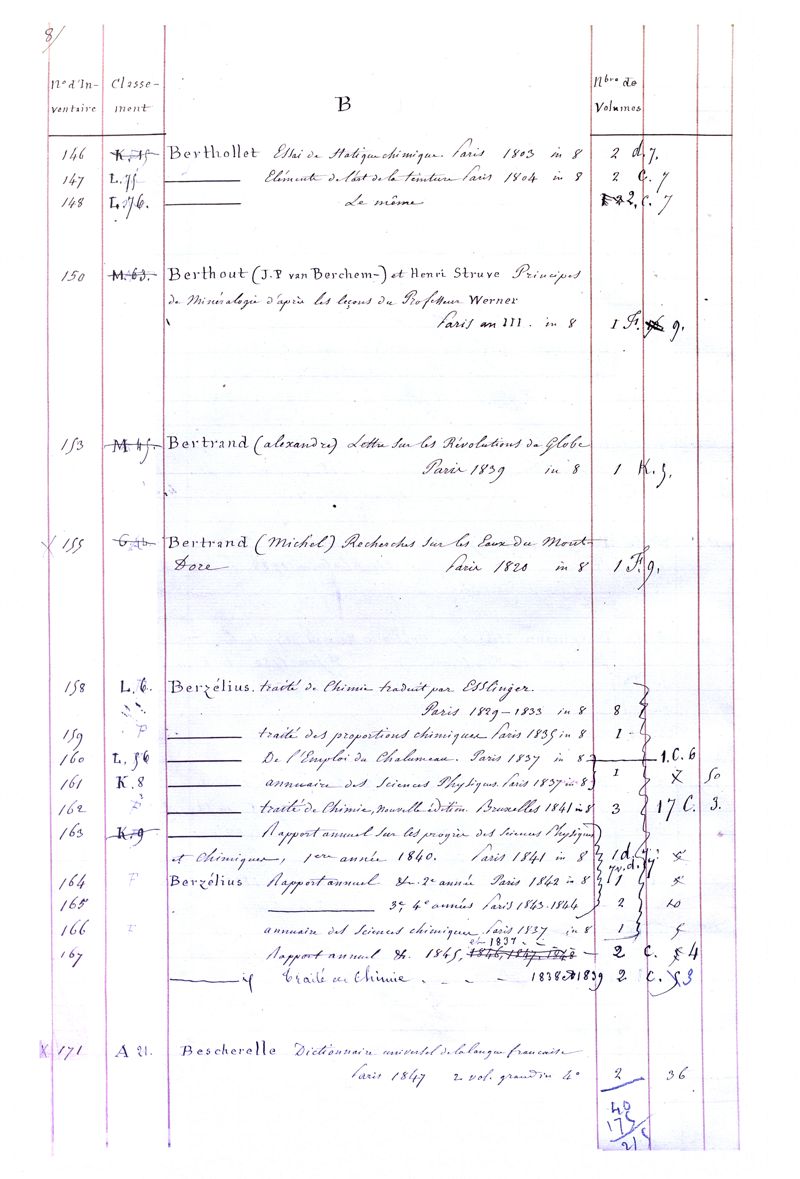 8/
No d'In- Classe- Nbre de
ventaire ment B Volumes
146 K. 15 Berthollet Essai de Statique chimique. Paris 1803 in 8 2 d. 7.
147 L. 75 ——— Eléments de l'art de la teinture Paris 1804 in 8 2 C. 7
148 L. 76. ——— Le même 2. C. 7
150 M. 63. Berthout (J. P. van Berchem-) et Henri Struve Principes
de Minéralogie d'après les leçons du Professeur Werner
Paris an III. in 8 1 F. 9.
153 M 45. Bertrand (alexandre) Lettre sur les Révolutions du Globe
Paris 1839 in 8 1 K. 5.
X 155 Bertrand (Michel) Recherches sur les Eaux du Mont-
Dore Paris 1820 in 8 1 F. 9.
158 L. 6. Berzélius. traité de Chimie traduit par Esslinger.
Paris 1829-1833 in 8 8
159 P ——— traité des proportions chimiques Paris 1835 in 8 1
160 L. 56 ——— De l'Emploi du Chalumeau. Paris 1837 in 8 1. C. 6
161 K. 8 ——— annuaire des Sciences Physiques. Paris 1837 in 8 1 X 50
162 P ——— traité de Chimie, Nouvelle édition. Bruxelles 1841 in 8 3 17 C. 3.
163 K. 9 ——— Rapport annuel sur les progrès des Sciences Physiques
et Chimiques, 1ere année 1840. Paris 1841 in 8 1 d. 7.
164 P Berzélius Rapport annuel &c. 2e année Paris 1842 in 8 1
165 ——— 3e, 4e années Paris 1843-1844 2
166 annuaire des Sciences chimiques Paris 1837 in 8 1
et 1837
167 Rapport annuel &c. 1845, 1846, 1847, 1848 — 2 C. 4
——— Traité de Chimie 1838 et 1839 2 C. 3
X 171 A 21. Bescherelle Dictionnaire universel de la langue francaise
Paris 1847 2 vol. grand in 4° 2 36
40
175
215